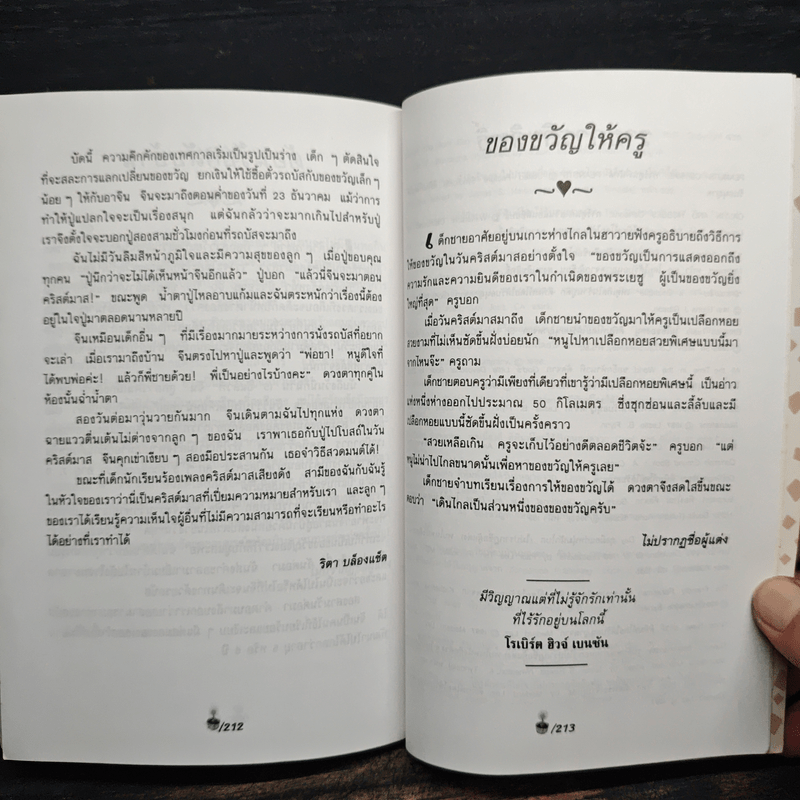 บัดนี้ ความคึกคักของเทศกาลเริ่มเป็นรูปเป็นร่าง เด็ก ๆ ตัดสินใจ
ที่จะสละการแลกเปลี่ยนของขวัญ ยกเงินให้ใช้ซื้อตั๋วรถบัสกับของขวัญเล็กๆ
น้อย ๆ ให้กับอาจิน จินจะมาถึงตอนค่ำของวันที่ 23 ธันวาคม แม้ว่าการ
ทำให้ปู่แปลกใจจะเป็นเรื่องสนุก แต่ฉันกลัวว่าจะมากเกินไปสำหรับปู่
เราจึงตั้งใจจะบอกปู่สองสามชั่วโมงก่อนที่รถบัสจะมาถึง
ฉันไม่มีวันลืมสีหน้าภูมิใจและมีความสุขของลูก ๆ เมื่อปู่ขอบคุณ
ทุกคน "ปู่นึกว่าจะไม่ได้เห็นหน้าจินอีกแล้ว" ปู่บอก "แล้วนี่จินจะมาตอน
คริสต์มาส!" ขณะพูด น้ำตาปู่ไหลอาบแก้มและฉันตระหนักว่าเรื่องนี้ต้อง
อยู่ในใจปู่มาตลอดนานหลายปี
จินเหมือนเด็กอื่น ๆ ที่มีเรื่องมากมายระหว่างการนั่งรถบัสที่อยาก
จะเล่า เมื่อเรามาถึงบ้าน จินตรงไปหาปู่และพูดว่า "พ่อขา! หนูดีใจที่
ได้พบพ่อค่ะ! แล้วก็พี่ชายด้วย! พี่เป็นอย่างไรบ้างคะ" ดวงตาทุกคู่ใน
ห้องนั้นฉ่ำน้ำตา
สองวันต่อมาวุ่นวายกันมาก จินเดินตามฉันไปทุกแห่ง ดวงตา
ฉายแววตื่นเต้นไม่ต่างจากลูก ๆ ของฉัน เราพาเธอกับปู่ไปโบสถ์ในวัน
คริสต์มาส จินคุกเข่าเงียบ ๆ สองมือประสานกัน เธอจำวิธีสวดมนต์ได้!
ขณะที่เด็กนักเรียนร้องเพลงคริสต์มาสเสียงดัง สามีของฉันกับฉันรู้
ในหัวใจของเราว่านี่เป็นคริสต์มาสที่เปี่ยมความหมายสำหรับเรา และลูก ๆ
ของเราได้เรียนรู้ความเห็นใจผู้อื่นที่ไม่มีความสามารถที่จะเรียนหรือทำอะไร
ได้อย่างที่เราทำได้
ริตา บล็องแช็ต
/212
ของขวัญให้ครู
เด็กชายอาศัยอยู่บนเกาะห่างไกลในฮาวายฟังครูอธิบายถึงวิธีการ
ให้ของขวัญในวันคริสต์มาสอย่างตั้งใจ "ของขวัญเป็นการแสดงออกถึง
ความรักและความยินดีของเราในกำเนิดของพระเยซู ผู้เป็นของขวัญยิ่ง
ใหญ่ที่สุด" ครูบอก
เมื่อวันคริสต์มาสมาถึง เด็กชายนำของขวัญมาให้ครูเป็นเปลือกหอย
สวยงามที่ไม่เห็นซัดขึ้นฝั่งบ่อยนัก "หนูไปหาเปลือกหอยสวยพิเศษแบบนี้มา
จากไหนจ๊ะ" ครูถาม
เด็กชายตอบครูว่ามีเพียงที่เดียวที่เขารู้ว่ามีเปลือกหอยพิเศษนี้ เป็นอ่าว
แห่งหนึ่งห่างออกไปประมาณ 50 กิโลเมตร ซึ่งซุกซ่อนและลี้ลับและมี
เปลือกหอยแบบนี้ซัดขึ้นฝั่งเป็นครั้งคราว
"สวยเหลือเกิน ครูจะเก็บไว้อย่างดีตลอดชีวิตจ้ะ" ครูบอก "แต่
หนูไม่น่าไปไกลขนาดนั้นเพื่อหาของขวัญให้ครูเลย"
เด็กชายจำบทเรียนเรื่องการให้ของขวัญได้ ดวงตาจึงสดใสขึ้นขณะ
ตอบว่า "เดินไกลเป็นส่วนหนึ่งของของขวัญครับ"
ไม่ปรากฏชื่อผู้แต่ง
มีวิญญาณแต่ที่ไม่รู้จักรักเท่านั้น
ที่ไร้รักอยู่บนโลกนี้
โรเบิร์ต ฮิวจ์ เบนซัน
/213